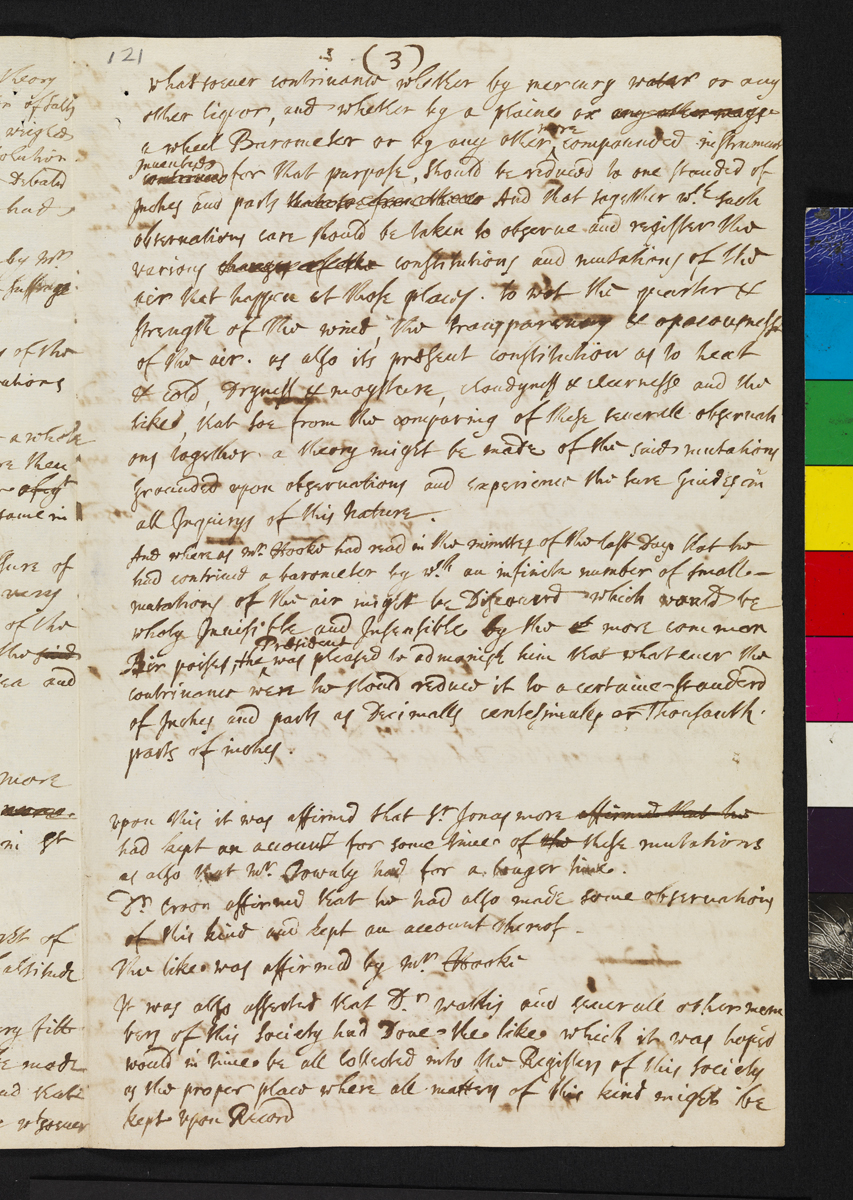 121
3
(3)
whatsoever contrivance whether by mercury water or any
other liquor, and whether by a plaine or any other
a wheel Barometer or by any other more compounded instrument
Invented
contrived for that purpose, should be reduced to one standerd of
Inches and parts And that together wth. such
observations care should be taken to observe and register the
various changes of the constitutions and mutations of the
air that happen at those places. to wit the quarter &
strength of the wind, the transparency & opacousnesse
of the air. as also its present constitution as to heat
& cold, Dryness & moysture, cloudyness & clearnesse and the
like, that soe from the comparing of these severall observati
ons together. a theory might be made of the said mutations
grounded upon observations and experience the sure guides in
all Inquirys of this Nature.
And whereas mr. Hooke had read in the minutes of the last Day that he
had contrived a barometer by wch an infinite number of small
mutations of the air might be Discovered which would be
wholy Invisible and Insensible by the more common
Air poises, the President was pleased to admonish him that whatever the
contrivance were he should reduce it to a certaine standerd
of Inches and parts as Decimalls centesimals or Thousanth
parts of inches.
upon this it was affirmed that Sr. Jonas more affirmed that he
had kept an account for some time of the these mutations
as also that Mr. Townly had for a longer time.
Dr. Croon affirmed that he had also made some observations
of this kind and kept an account thereof.
the like was affirmed by Mr. Hooke
It was also asserted that Dr. wallis and severall other mem
bers of this Society had Done the like which it was hoped
would in time be all collected into the Registers of this Society
as the proper place where all matters of this kind might be
kept upon Record
theory
Debated
had
by mr.
of the
of
very
of the
the said
and
more
of
altitude
made